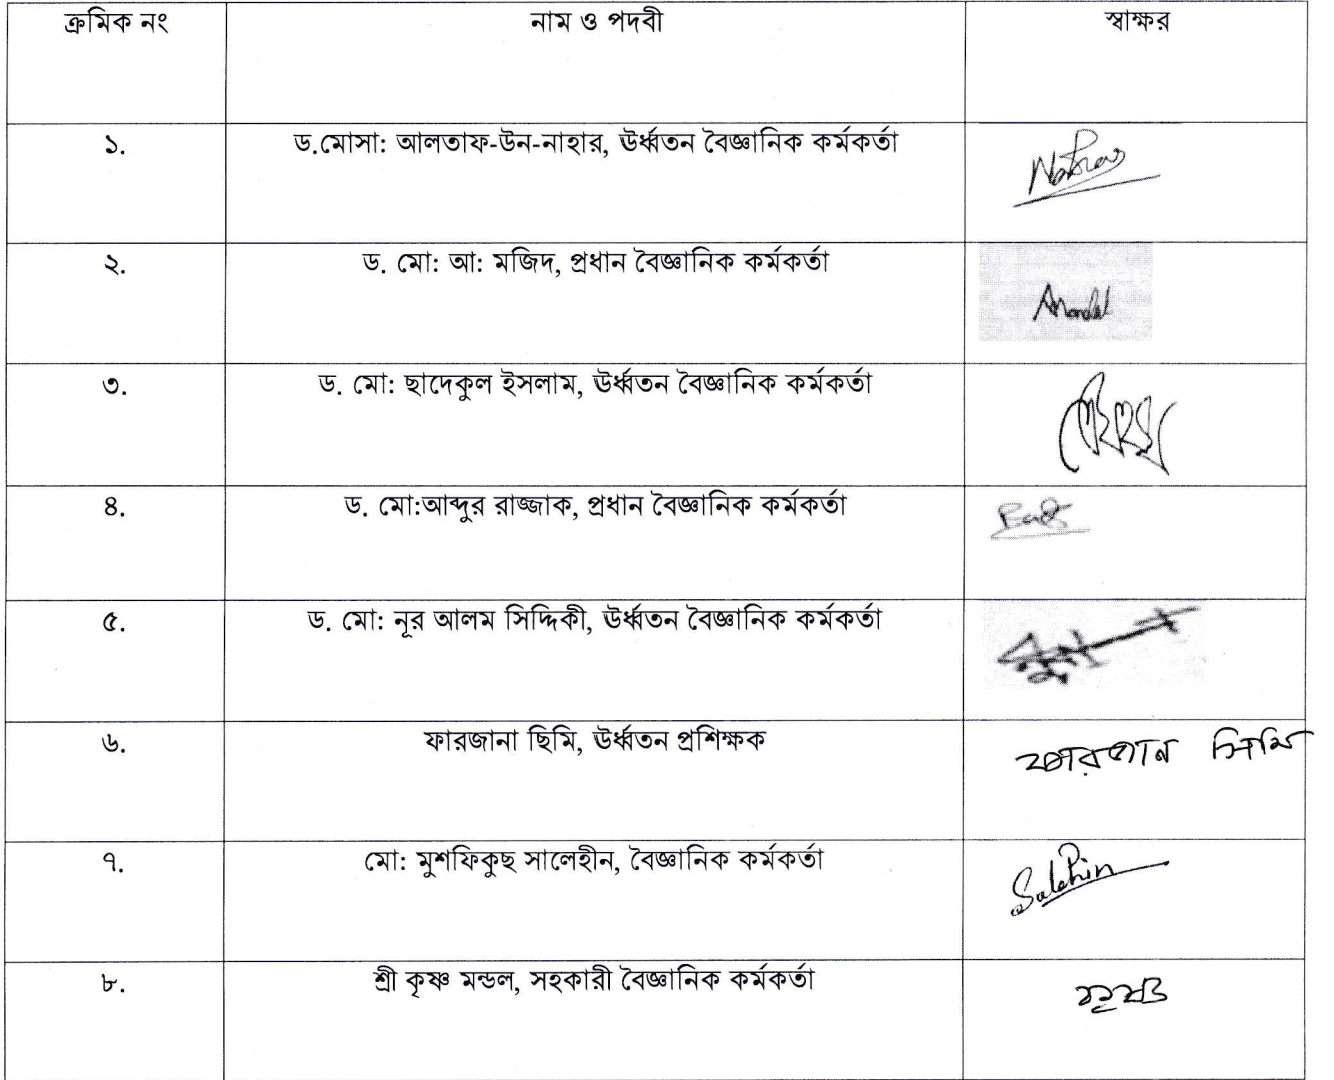 ক্রমিক নং নাম ও পদবী স্বাক্ষর
১. ড.মোসা: আলতাফ-উন-নাহার, ঊর্ধ্বতন বৈজ্ঞানিক কর্মকর্তা
২. ড. মো: আ: মজিদ, প্রধান বৈজ্ঞানিক কর্মকর্তা
৩. ড. মো: ছাদেকুল ইসলাম, ঊর্ধ্বতন বৈজ্ঞানিক কর্মকর্তা
৪. ড. মো:আব্দুর রাজ্জাক, প্রধান বৈজ্ঞানিক কর্মকর্তা
৫. ড. মো: নূর আলম সিদ্দিকী, ঊর্ধ্বতন বৈজ্ঞানিক কর্মকর্তা
৬. ফারজানা ছিমি, ঊর্ধ্বতন প্রশিক্ষক
৭. মো: মুশফিকুছ সালেহীন, বৈজ্ঞানিক কর্মকর্তা Salehin
৮. শ্রী কৃষ্ণ মন্ডল, সহকারী বৈজ্ঞানিক কর্মকর্তা